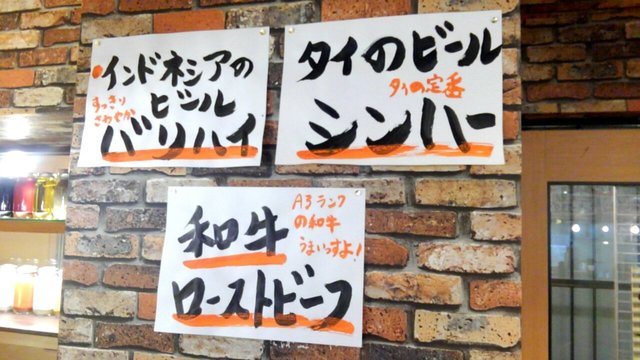 インドネシアの
すっきり
さわやか
ビール
バリハイ
タイのビール
タイの定番
シンハー
和牛
A3ランク
の和牛
うまいっすよ!
ローストビーフ